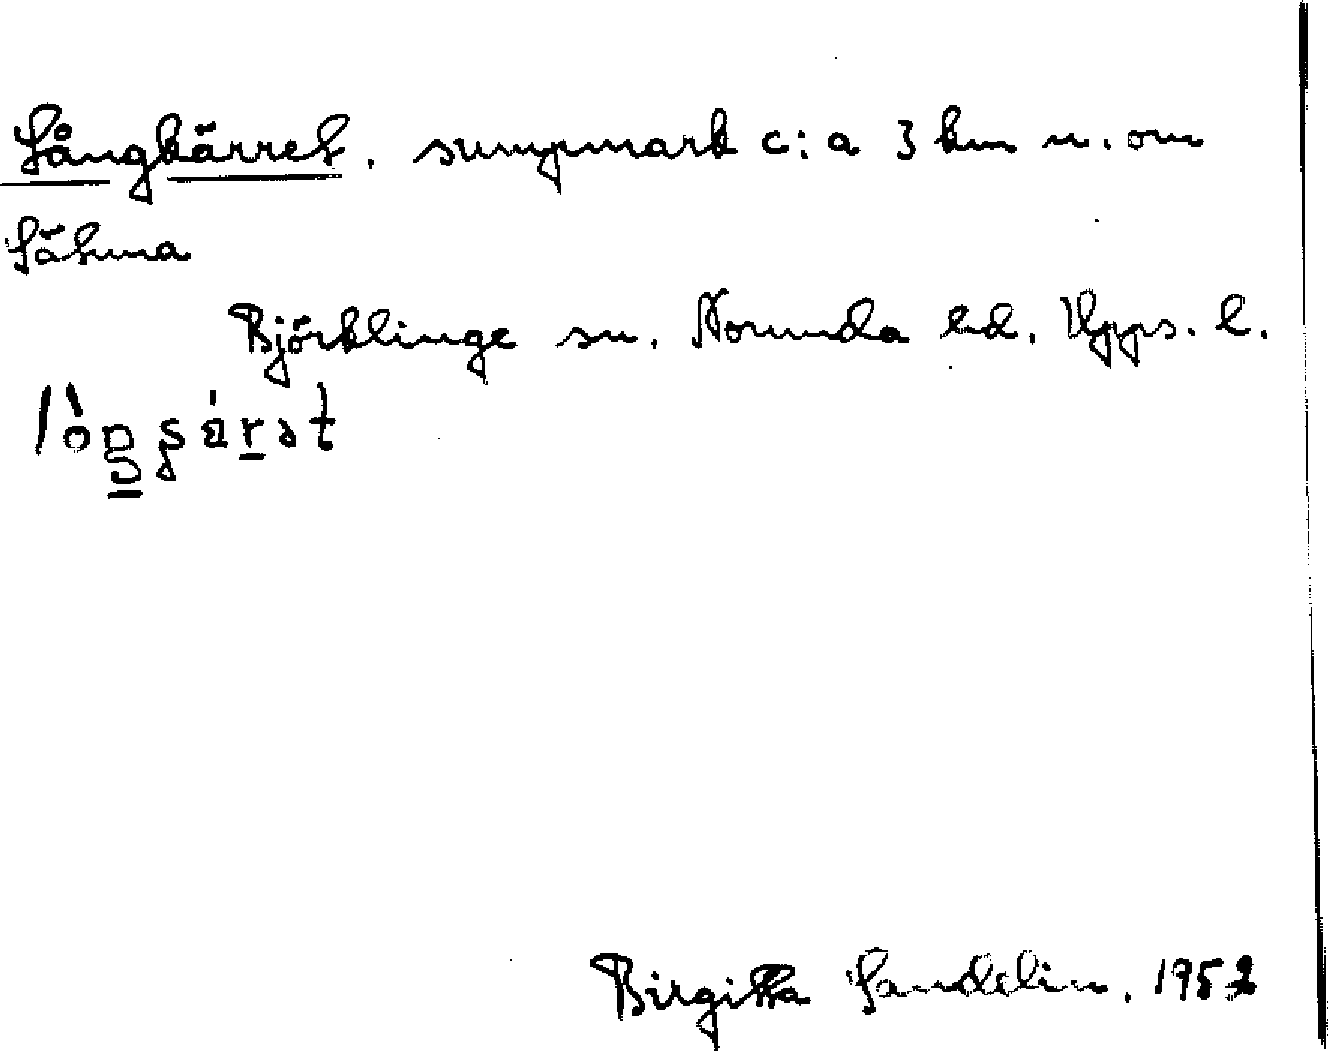 Långkärret, sumpmark c:a 3 km n. om
Sätuna
Björklinge sn. Norunda hd. Upps. l.
Birgitta Sandelin, 1952